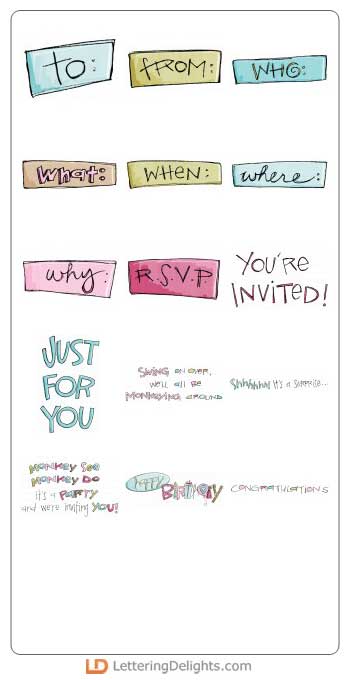 TO:
FROM:
WHO:
what:
WHEN:
where:
why:
R.S.V.P.
YOU'RE
INVITED!
JUST
FOR
YOU
SWING ON OVER,
we'll all be
MONKEYING AROUND
Shhhhhh! It's a surprise...
MONKEY SEE
MONKEY DO
it's a PARTY
and we're inviting YOU!
HAPPY
BIRTHDAY
CONGRATULATIONS
LD LetteringDelights.com